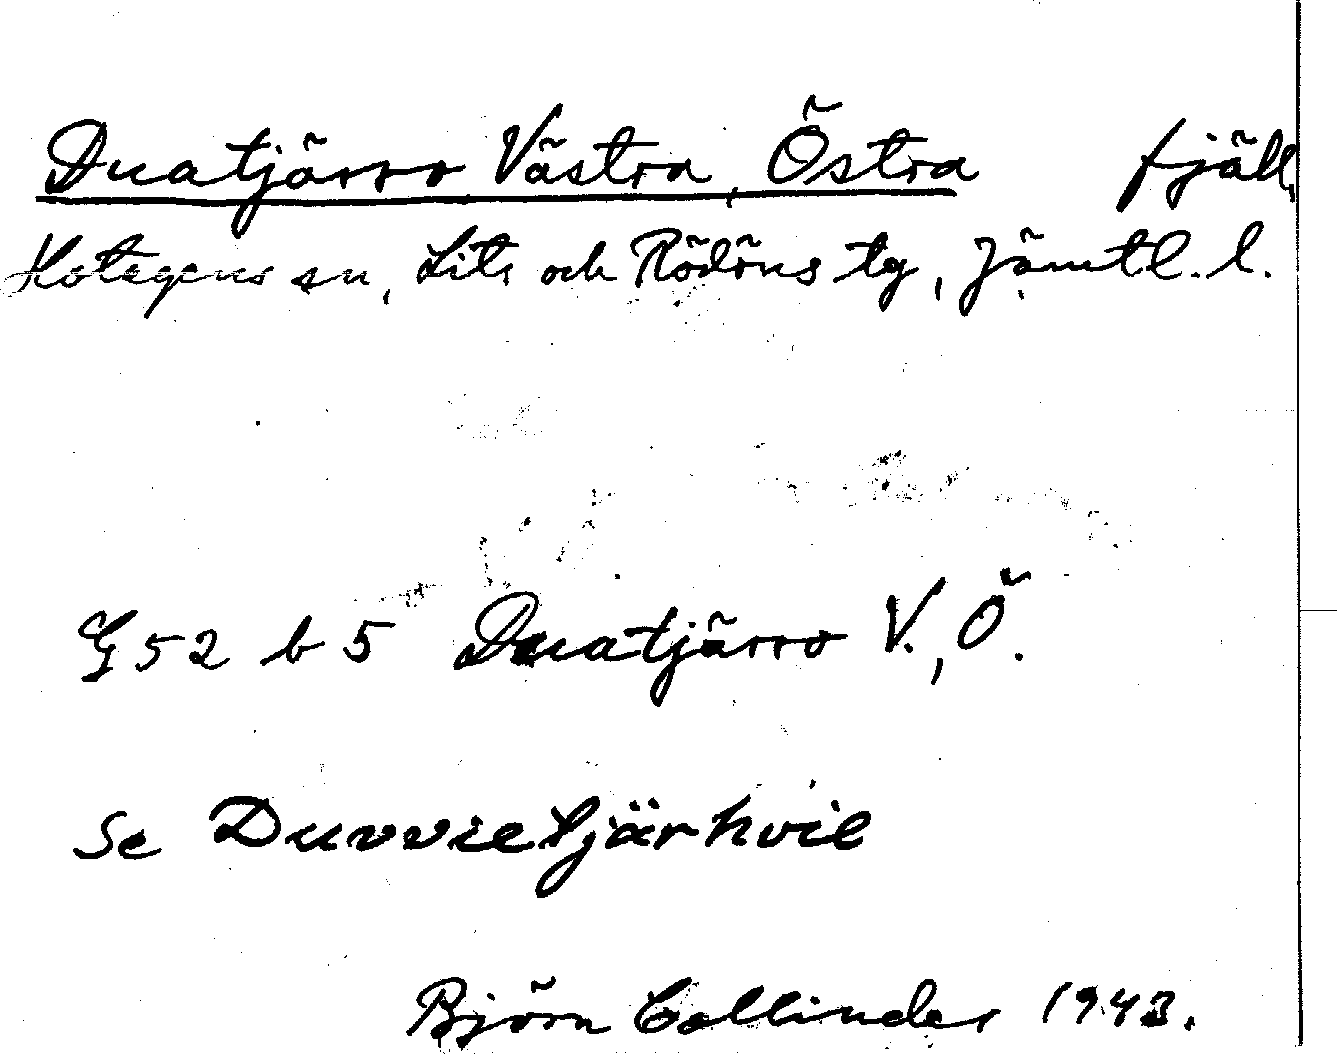 Duatjårro Västra, Östra fjäll,
Hotagens sn, Lits och Rödöns tg, Jämtl. l.
G 52 b 5 Duatjårro V., Ö.
Se Duvvietjärhvie
Björn Collinder 1943.